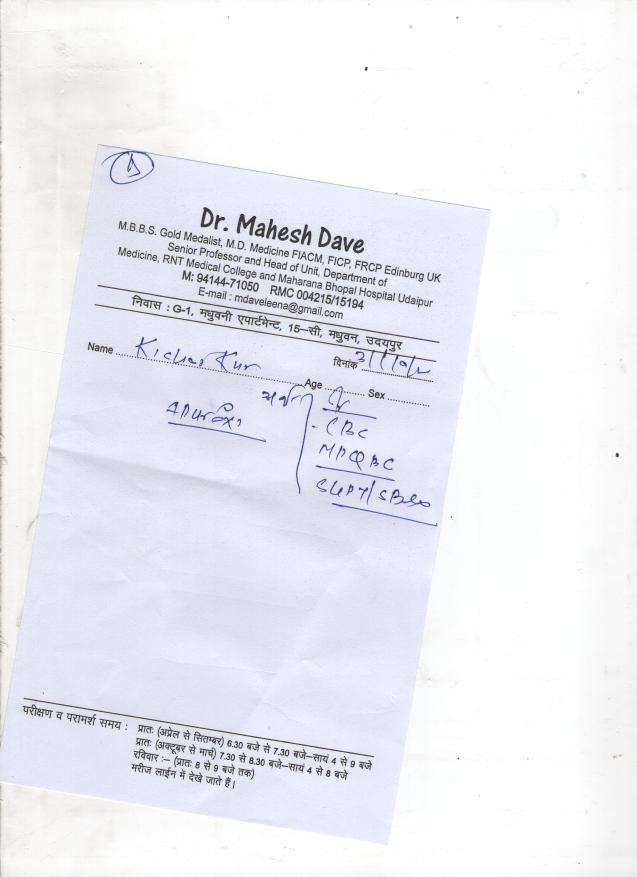 Dr. Mahesh Dave
M.B.B.S. Gold Medalist, M.D. Medicine FIACM, FICP, FRCP Edinburg UK
Senior Professor and Head of Unit, Department of
Medicine, RNT Medical College and Maharana Bhopal Hospital Udaipur
M: 94144-71050 RMC 004215/15194
E-mail : mdaveleena@gmail.com
निवास : G-1, मधुवनी एपार्टमेन्ट, 15–सी, मधुवन, उदयपुर
Name दिनांक
Age Sex
CBC
MPQBC
SGPT/
परीक्षण व परामर्श समय : प्रातः (अप्रेल से सितम्बर) 6.30 बजे से 7.30 बजे–सायं 4 से 9 बजे
प्रातः (अक्टूबर से मार्च) 7.30 से 8.30 बजे–सायं 4 से 8 बजे
रविवार :– (प्रातः 8 से 9 बजे तक)
मरीज लाईन में देखे जाते हैं।